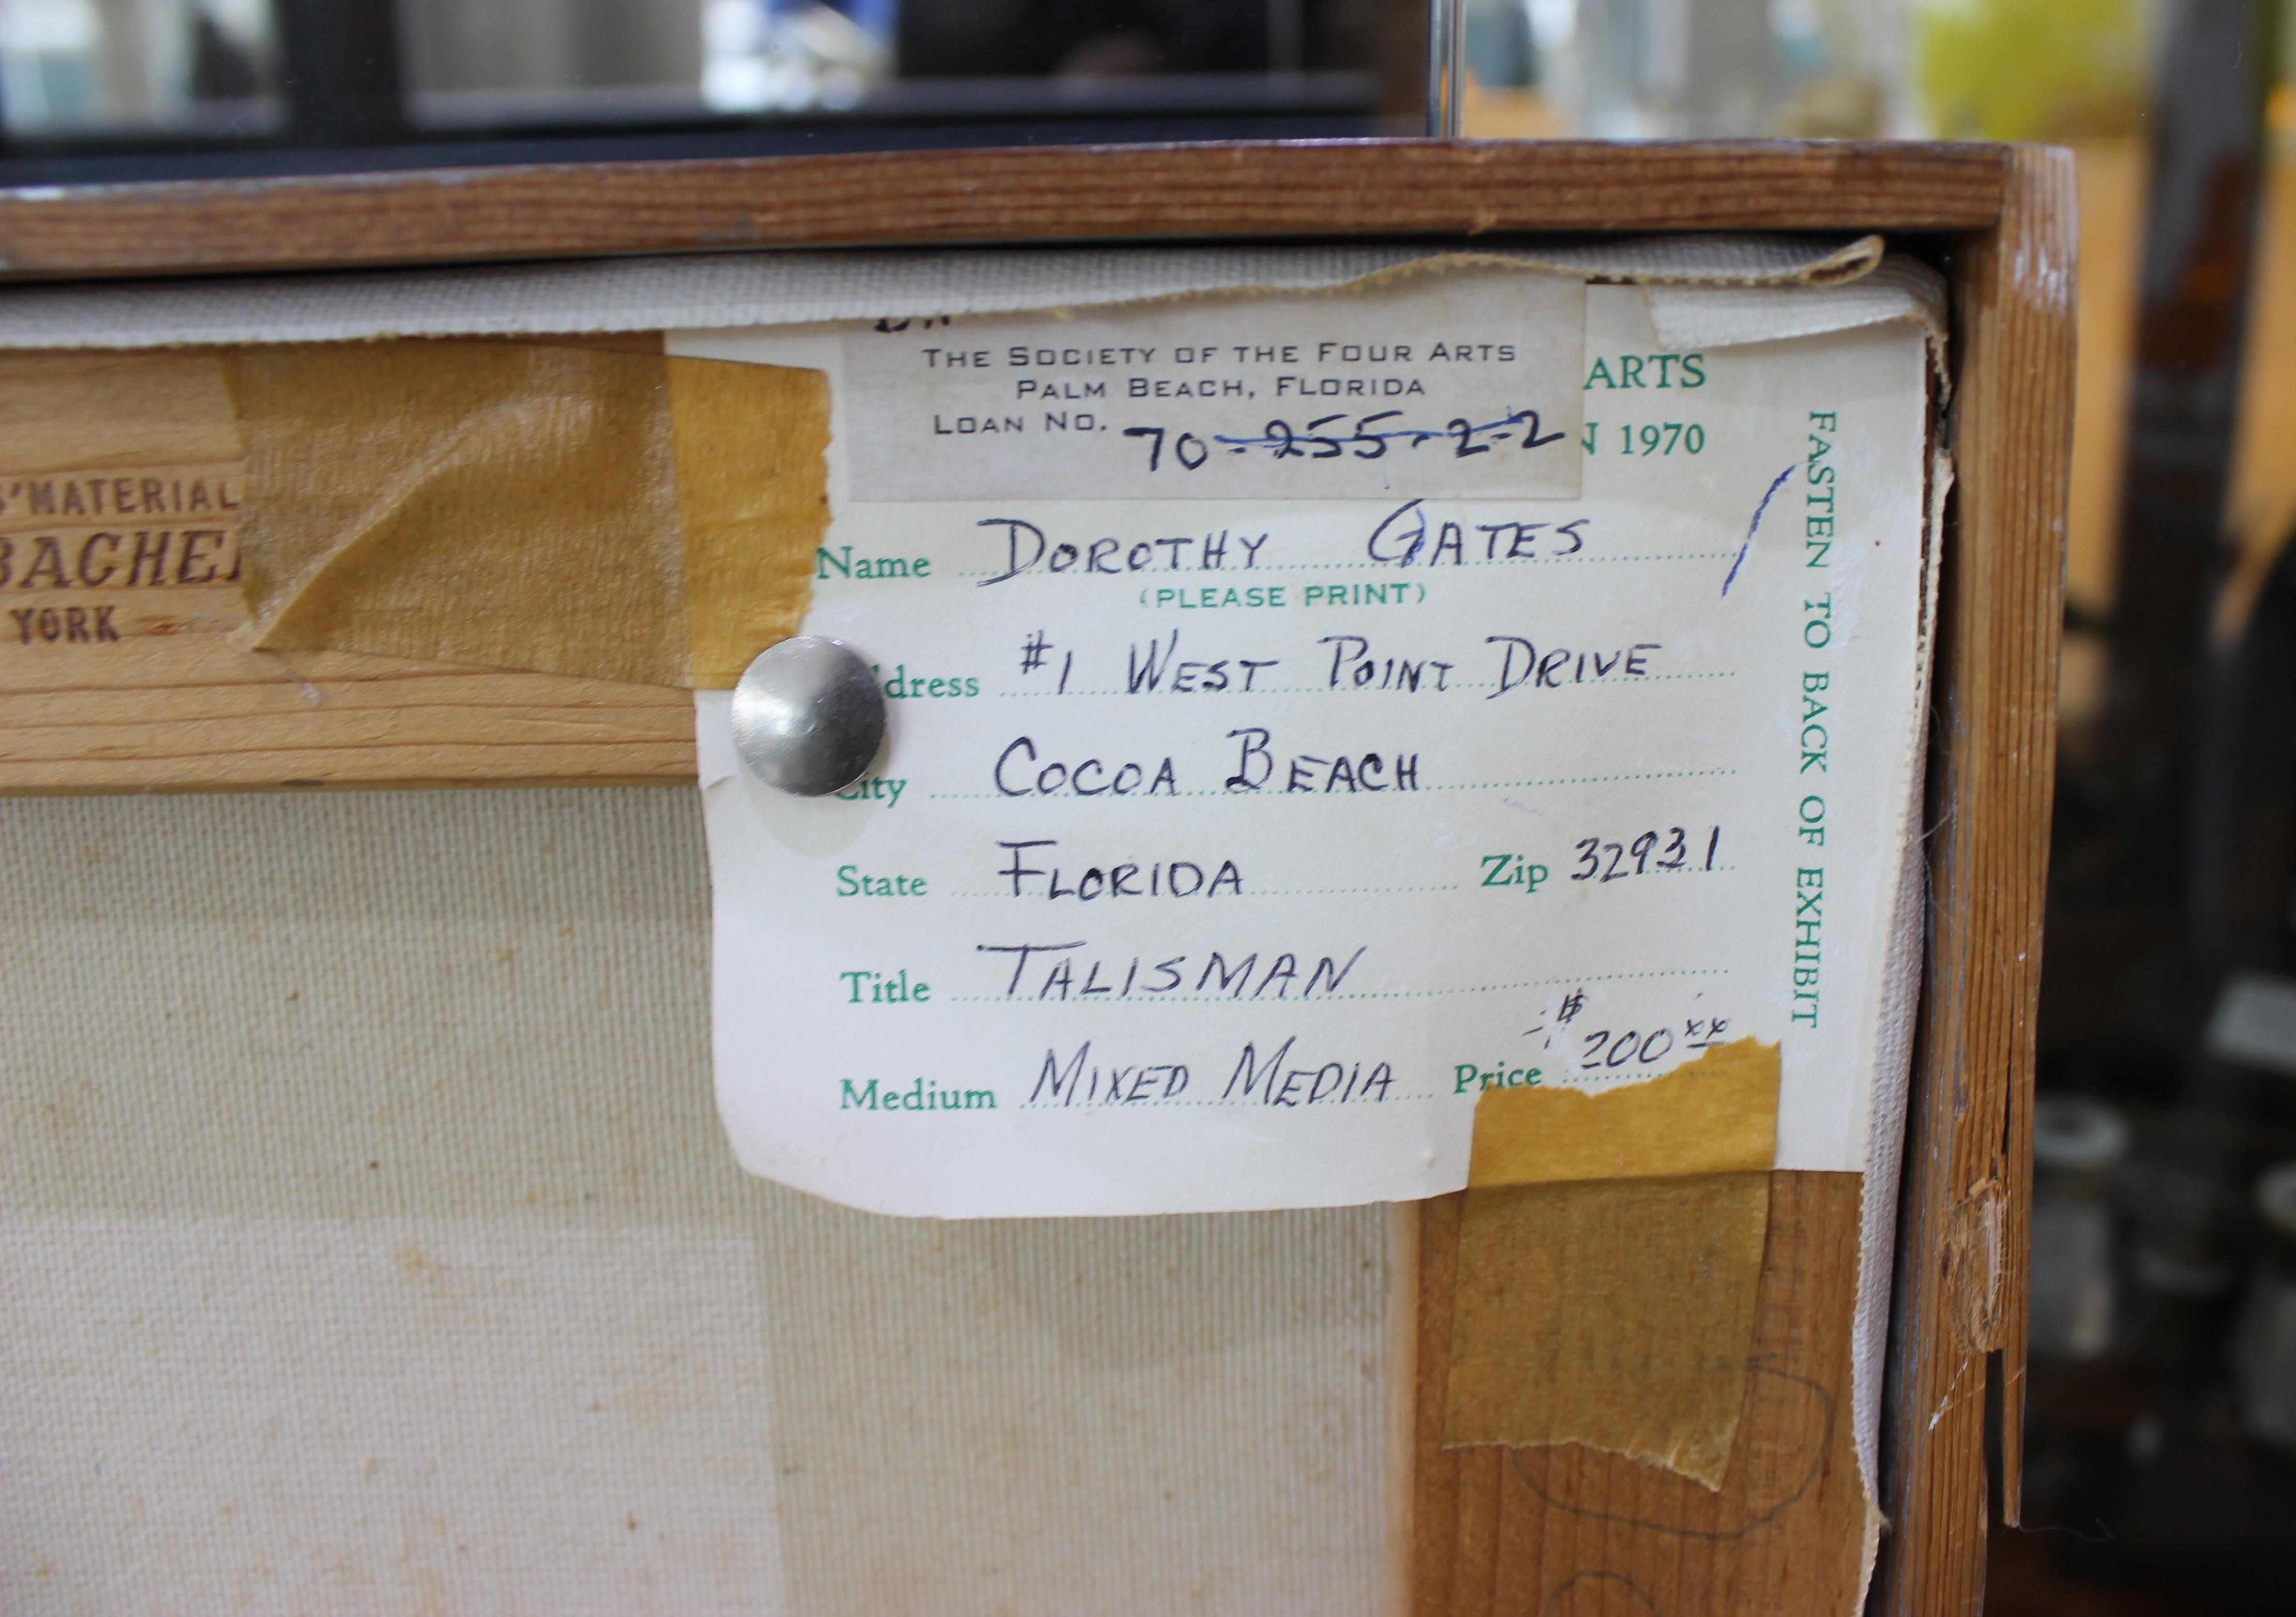 THE SOCIETY OF THE FOUR ARTS
PALM BEACH, FLORIDA
LOAN NO. 70-255-2-2
ARTS
1970
Name DOROTHY GATES
(PLEASE PRINT)
dress #1 WEST POINT DRIVE
City COCOA BEACH
State FLORIDA Zip 32931
Title TALISMAN
Medium MIXED MEDIA Price $200 xx
FASTEN TO BACK OF EXHIBIT
S' MATERIAL
BACHE
YORK